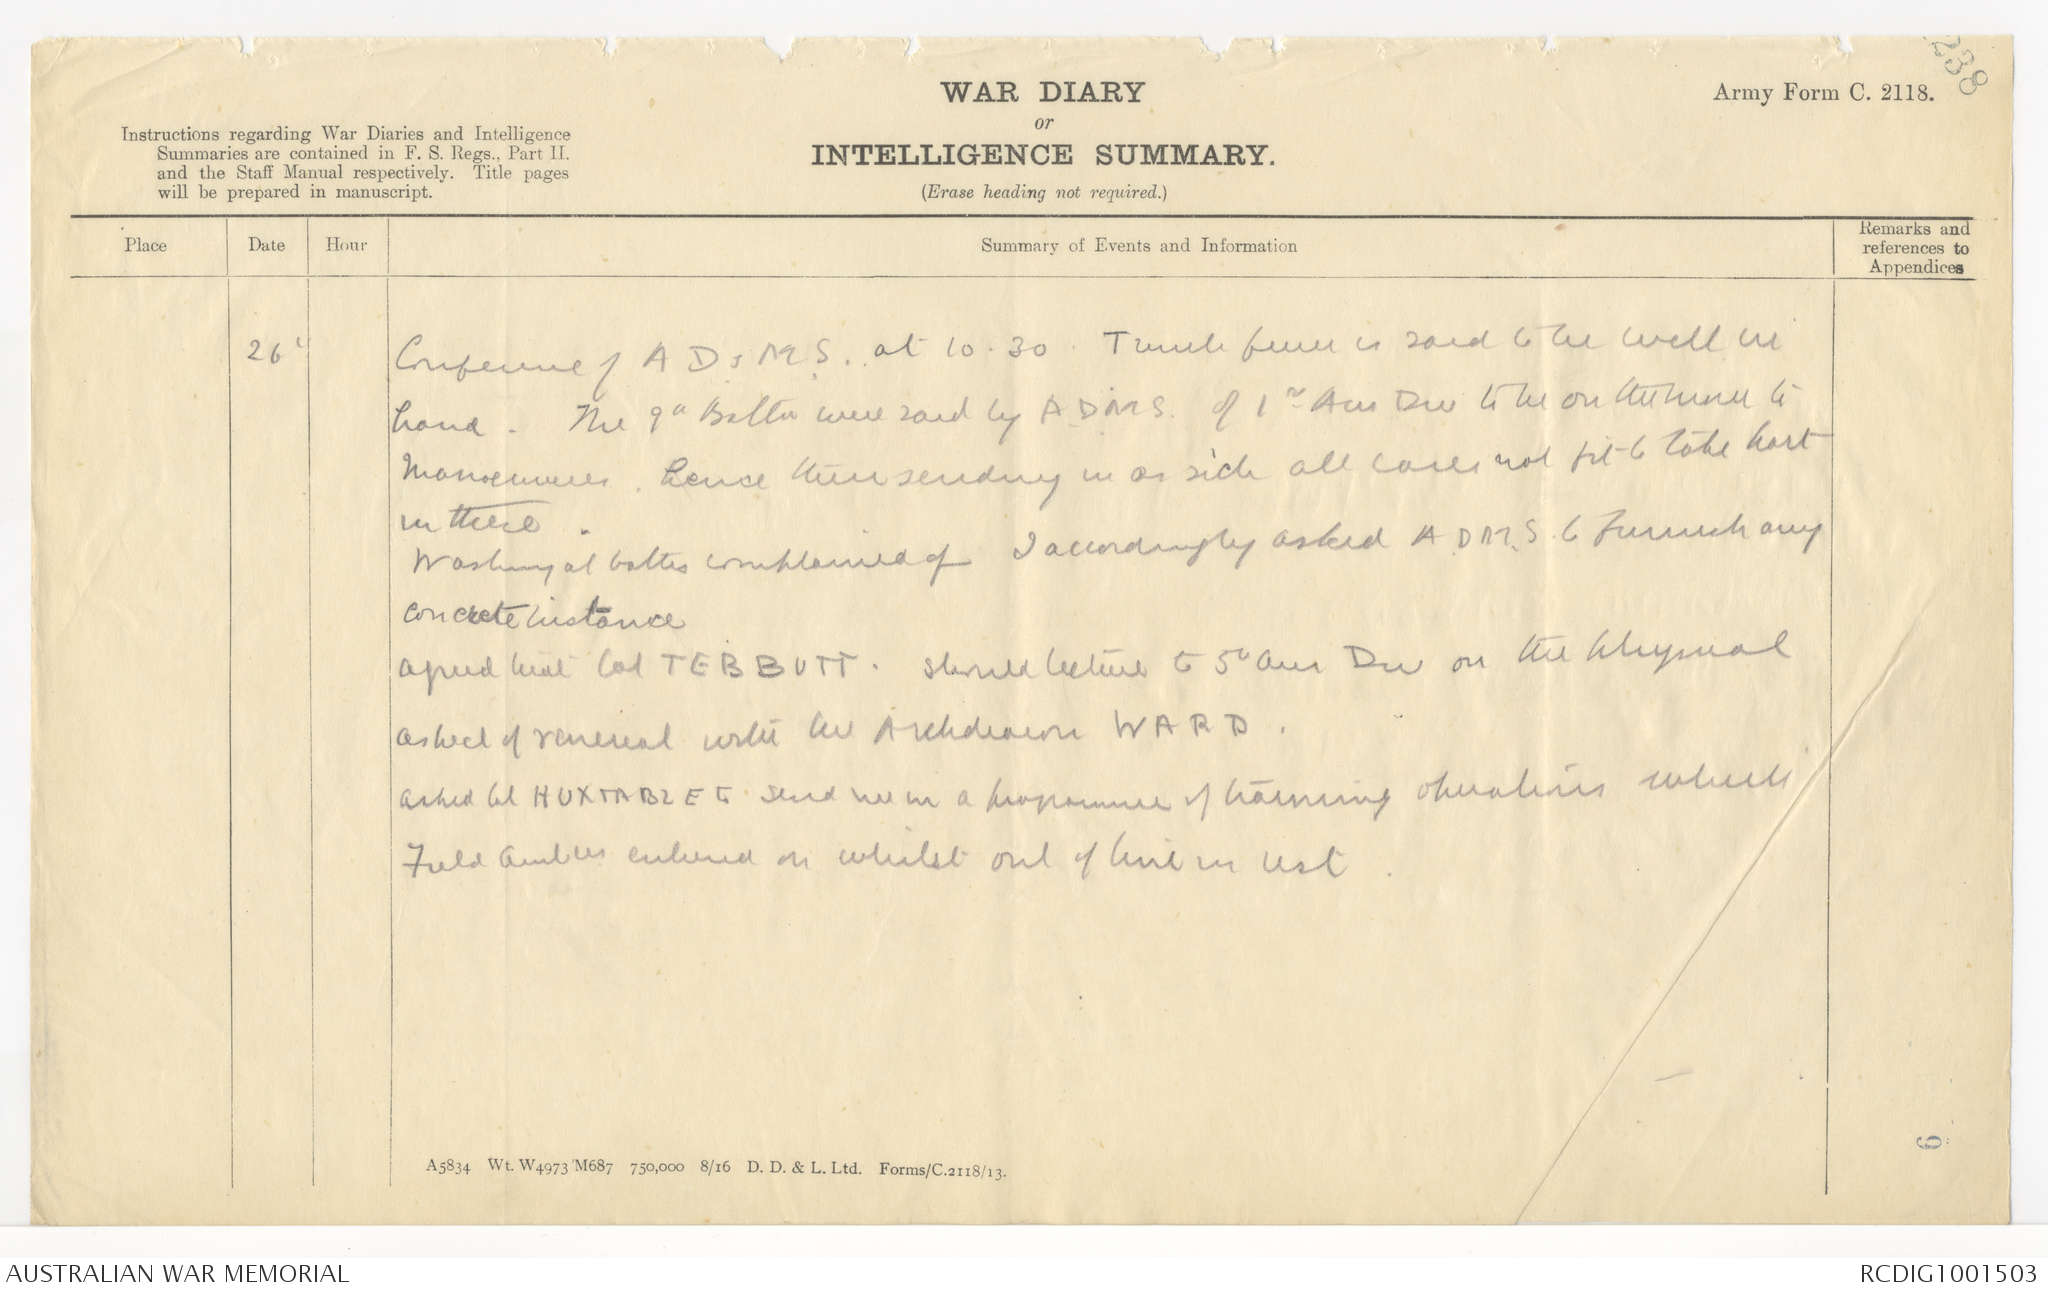 238
WAR DIARY
or
INTELLIGENCE SUMMARY.
(Erase heading not required.)
Army Form C. 2118.
Instructions regarding War Diaries and Intelligence
Summaries are contained in F. S. Regs., Part II.
and the Staff Manual respectively. Title pages
will be prepared in manuscript.
Place
Date
Hour
Summary of Events and Information
Remarks and
references to
Appendices
26
Conference of A D s M S. at 10.30. Trench fever is said to be well in
hand. The 9th Battn were said by A D M S. of 1st Aus Div to be on the move to
Manoeuvres. hence their sending in as sick all cases not fit to take part
in these.
Washing at baths complained of I accordingly asked A D M S. to furnish any
concrete instance
agreed that Col TEBBUTT. should lecture to 5th Aus Div on the physical
aspect of venereal with the Archdeacon WARD.
asked Col HUXTABLE to send me in a programme of training operations which
Field Ambces entered on whilst out of line in rest.
A5834 Wt. W4973/M687 750,000 8/16 D. D. & L. Ltd. Forms/C.2118/13.
6
AUSTRALIAN WAR MEMORIAL
RCDIG1001503